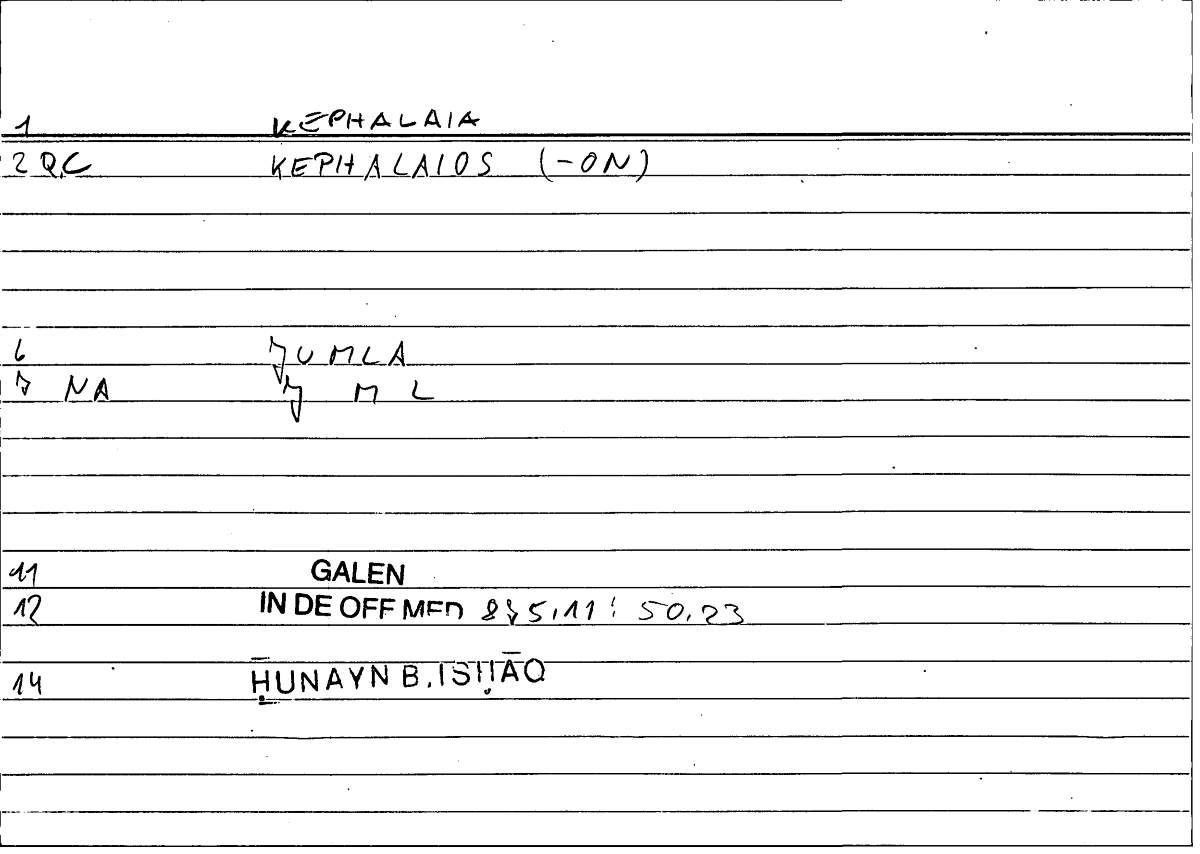 1 KEPHALAIA
2 QC KEPHALAIOS (-ON)
6 JUMLA
7 NA J M L
11 GALEN
12 IN DE OFF MED 5,11 : 50,23
14 ḤUNAYN B. ISḤĀQ